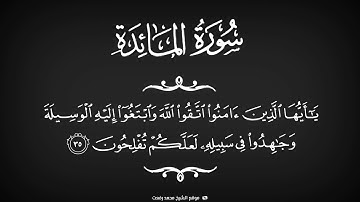 سُورَةُ المَائِدَةِ
يَٰٓأَيُّهَا ٱلَّذِينَ ءَامَنُوا۟ ٱتَّقُوا۟ ٱللَّهَ وَٱبْتَغُوٓا۟ إِلَيْهِ ٱلْوَسِيلَةَ
وَجَٰهِدُوا۟ فِى سَبِيلِهِۦ لَعَلَّكُمْ تُفْلِحُونَ ٣٥
موقع الشيخ محمد رفعت